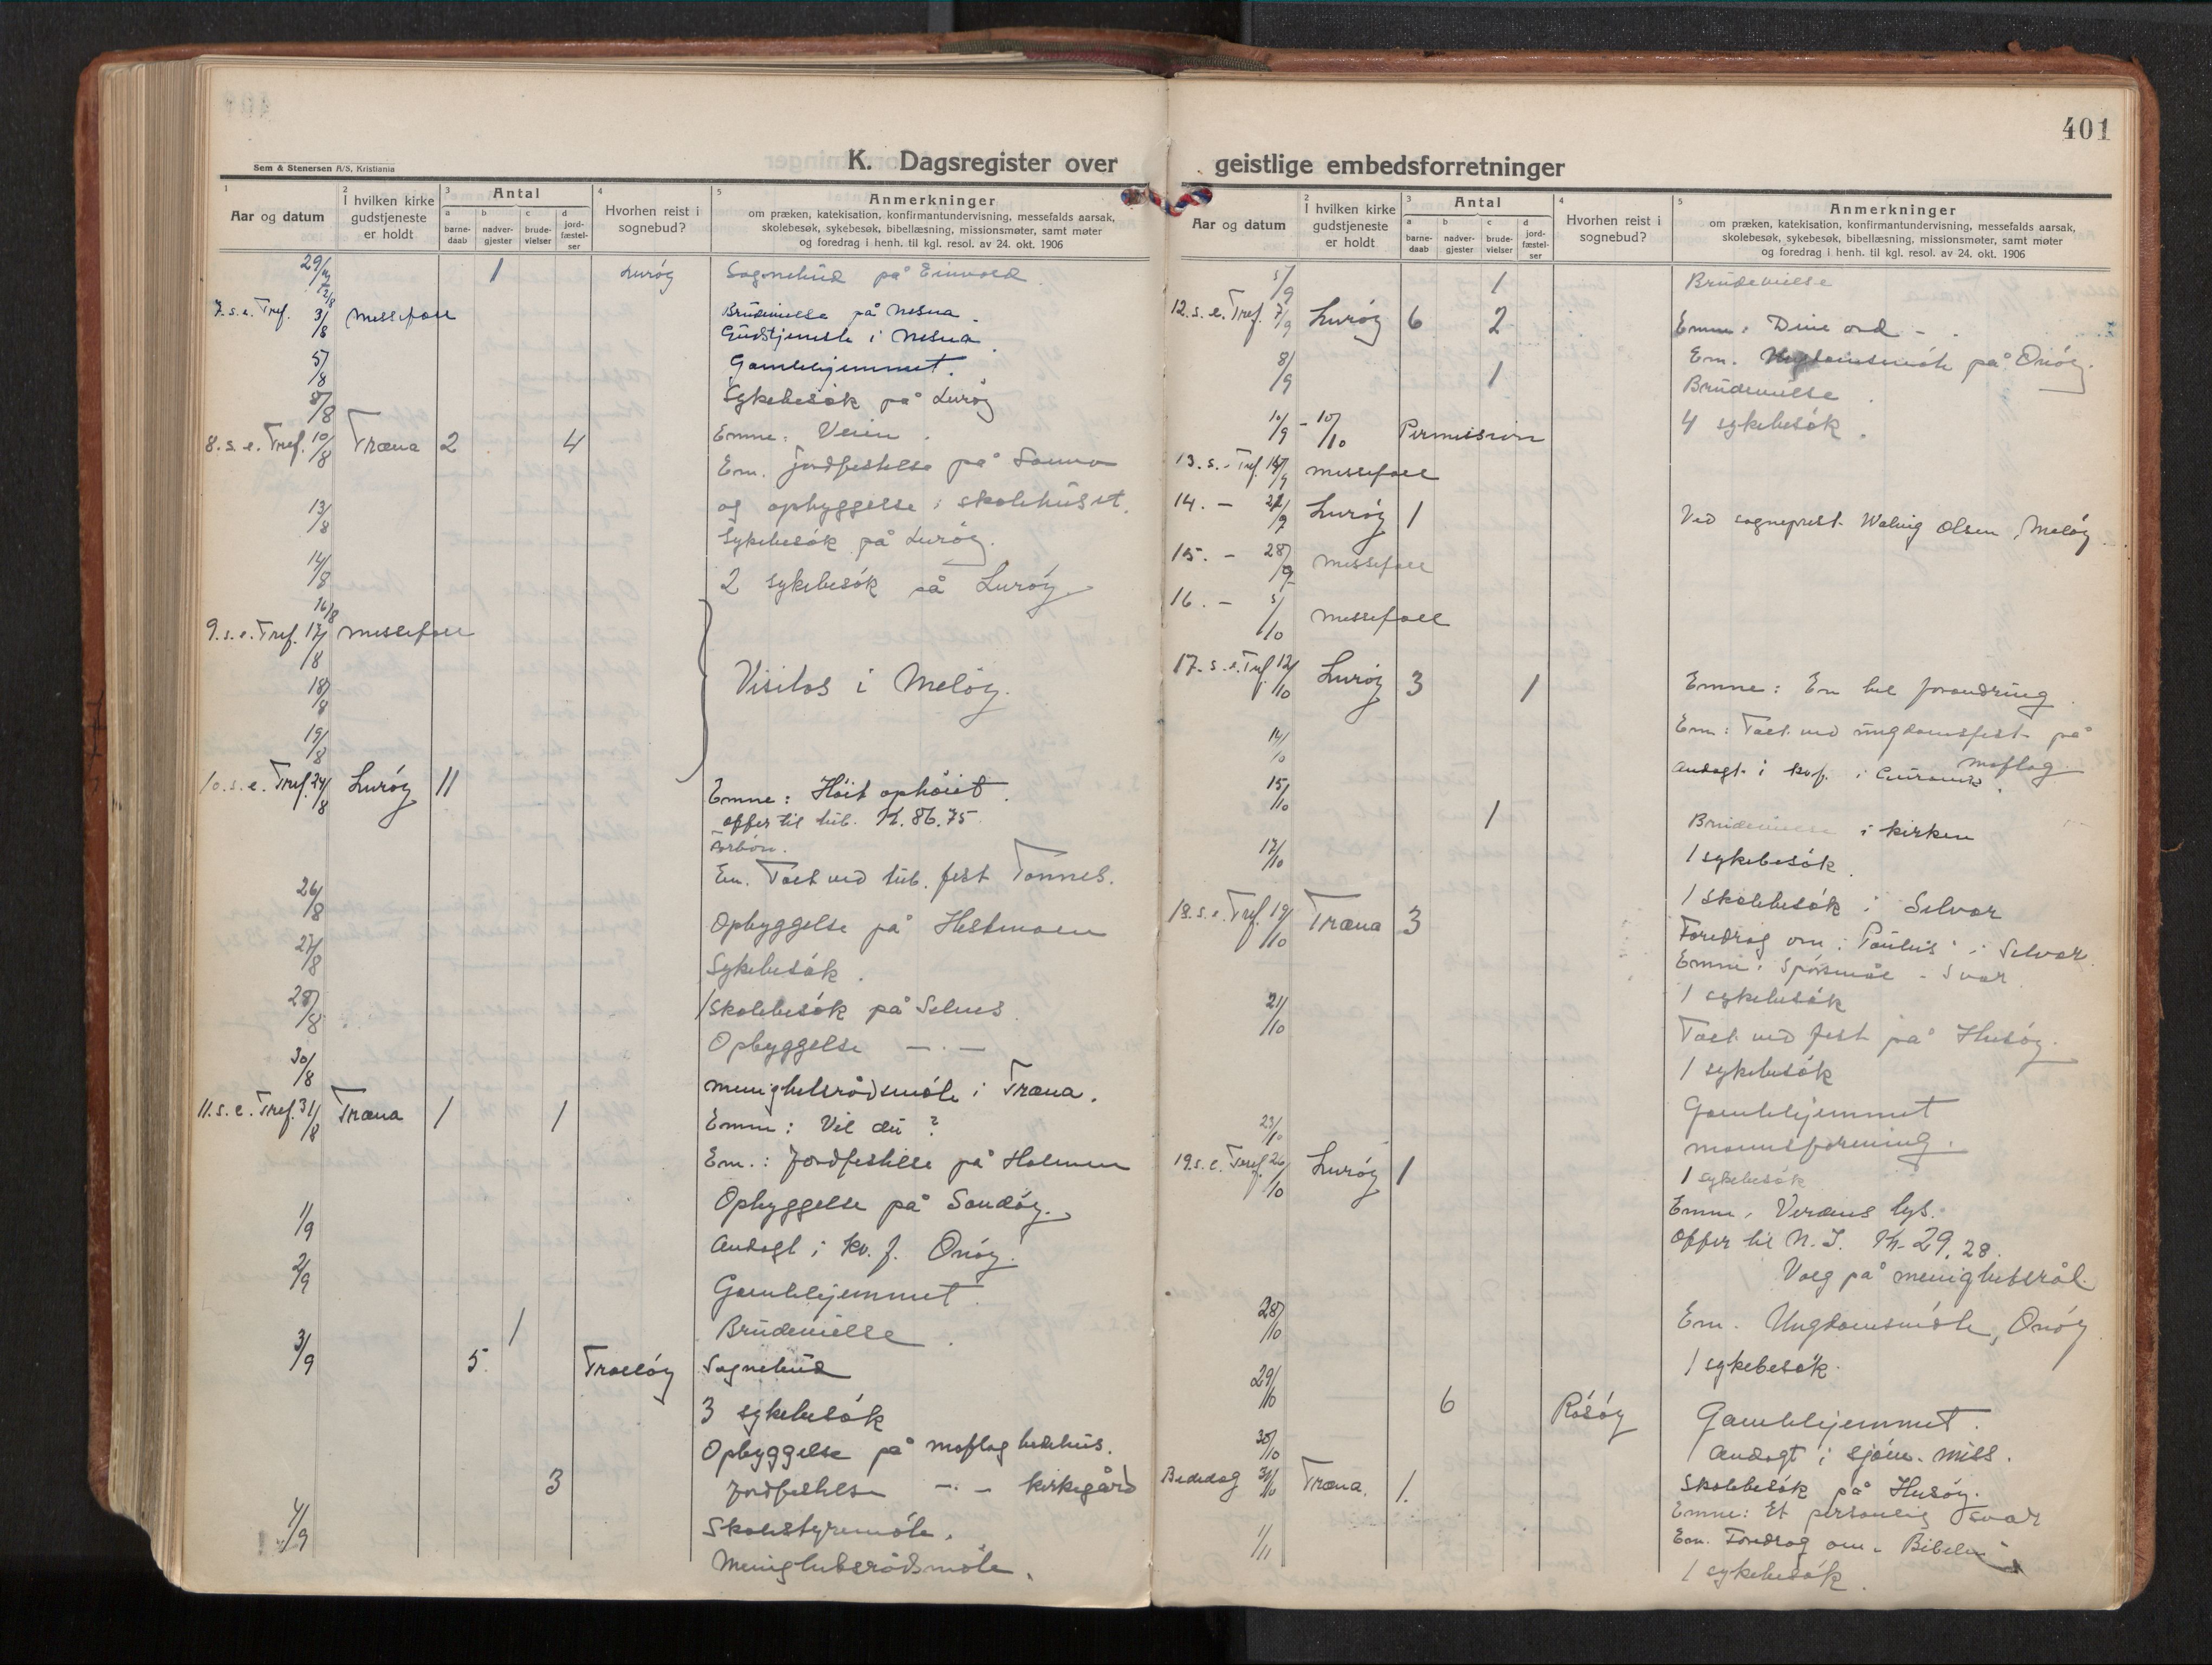 401
Sem & Stenersen A/S, Kristiania
K. Dagsregister over
1
Aar og datum
2
I hvilken kirke
gudstjeneste
er holdt
3
Antal
a
barne-
daab
b
nadver-
gjester
c
brude-
vielser
d
jord-
fæstel-
ser
4
Hvorhen reist i
sognebud?
5
Anmerkninger
om præken, katekisation, konfirmantundervisning, messefalds aarsak,
skolebesøk, sykebesøk, bibellæsning, missionsmøter, samt møter
og foredrag i henh. til kgl. resol. av 24. okt. 1906
29/7 1 Lurøy Sognebud på
2/8 Brudevielse på Nesna.
7. s. e. Tref. 3/8 messefall Gudstjeneste i Nesna.
5/8 Gamlehjemmet.
8/8 Sykebesøk på Lurøy
8. s. e. Tref. 10/8 Træna 2 4 Emne: Veien.
Em. Jordfestelse på Sanna
og opbyggelse i skolehuset.
13/8 Sykebesøk på Lurøy.
14/8 2 sykebesøk på Lurøy.
16/8
9. s. e. Tref. 17/8 messefall
18/8 Visitas i Meløy.
19/8
10. s. e. Tref. 24/8 Lurøy 11 Emne: Høit ophøiet.
offer til 86.75
Forbøn.
Em. Talt ved fest Tonnes.
26/8 Opbyggelse på Hestmoen
27/8 Sykebesøk.
28/8 1 skolebesøk på Selnes
Opbyggelse — . —
30/8 menighetsrådsmøte i Træna.
11. s. e. Tref. 31/8 Træna 1 1 Emne: Vil du?
Em.: Jordfestelse på Holmen
Opbyggelse på Sandøy.
1/9 Andagt i kv. f. Onøy.
2/9 Gamlehjemmet.
1 Brudevielse.
3/9 5. Træløy Sognebud
3 sykebesøk
Opbyggelse på Moflag bedehus.
3 Jordfestelse — . — kirkegård
4/9 Skolestyremøte.
Menighetsrådsmøte.
401
geistlige embedsforretninger
Aar og datum
2
I hvilken kirke
gudstjeneste
er holdt
3
Antal
a
barne-
daab
b
nadver-
gjester
c
brude-
vielser
d
jord-
fæstel-
ser
4
Hvorhen reist i
sognebud?
5
Anmerkninger
om præken, katekisation, konfirmantundervisning, messefalds aarsak,
skolebesøk, sykebesøk, bibellæsning, missionsmøter, samt møter
og foredrag i henh. til kgl. resol. av 24. okt. 1906
5/9 1 Brudevielse
12. s. e. Tref. 7/9 Lurøy 6 2 Emne: Dine ord -.
Em. Ungdomsmøte på Onøy.
8/9 1 Brudevielse.
4 sykebesøk.
10/9 - 10/10 Permission
13. s. - Tref. 14/9 messefall
14. — 21/9 Lurøy 1 Ved sogneprest Waling Olsen, Meløy.
15. — 28/9 messefall
16. — 5/10 messefall
17. s. e. Tref. 12/10 Lurøy 3 1 Emne: En hel forandring.
Em: Talt ved ungdomsfest på
Moflag.
14/10 Andagt i kv. f. i
15/10 1 Brudevielse i kirken
1 sykebesøk.
17/10 1 skolebesøk i Selvær
Foredrag om "Paulus" i Selvær.
18. s. e. Tref. 19/10 Træna 3 Emne: Spørsmål - Svar.
1 sykebesøk
21/10 Talt ved fest på Husøy.
1 sykebesøk
Gamlehjemmet
23/10 mannsforening.
1 sykebesøk
19. s. e. Tref. 26/10 Lurøy 1 Emne, Verdens lys.
Offer til N. I. Kr. 29.28.
Valg på menighetsråd.
Em. Ungdomsmøte, Onøy
28/10 1 sykebesøk.
29/10 6 Råsøy Gamlehjemmet.
Andagt i sjøm. miss.
30/10 Skolebesøk på Husøy.
Bededag 31/10 Træna. 1. Emne: Et personlig svar
Em. Foredrag om "Bibelen"
1/11 1 sykebesøk.